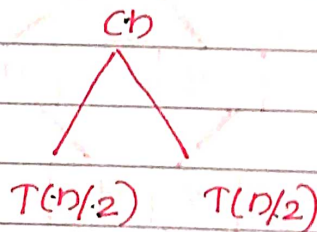 cn
T(n/2) T(n/2)